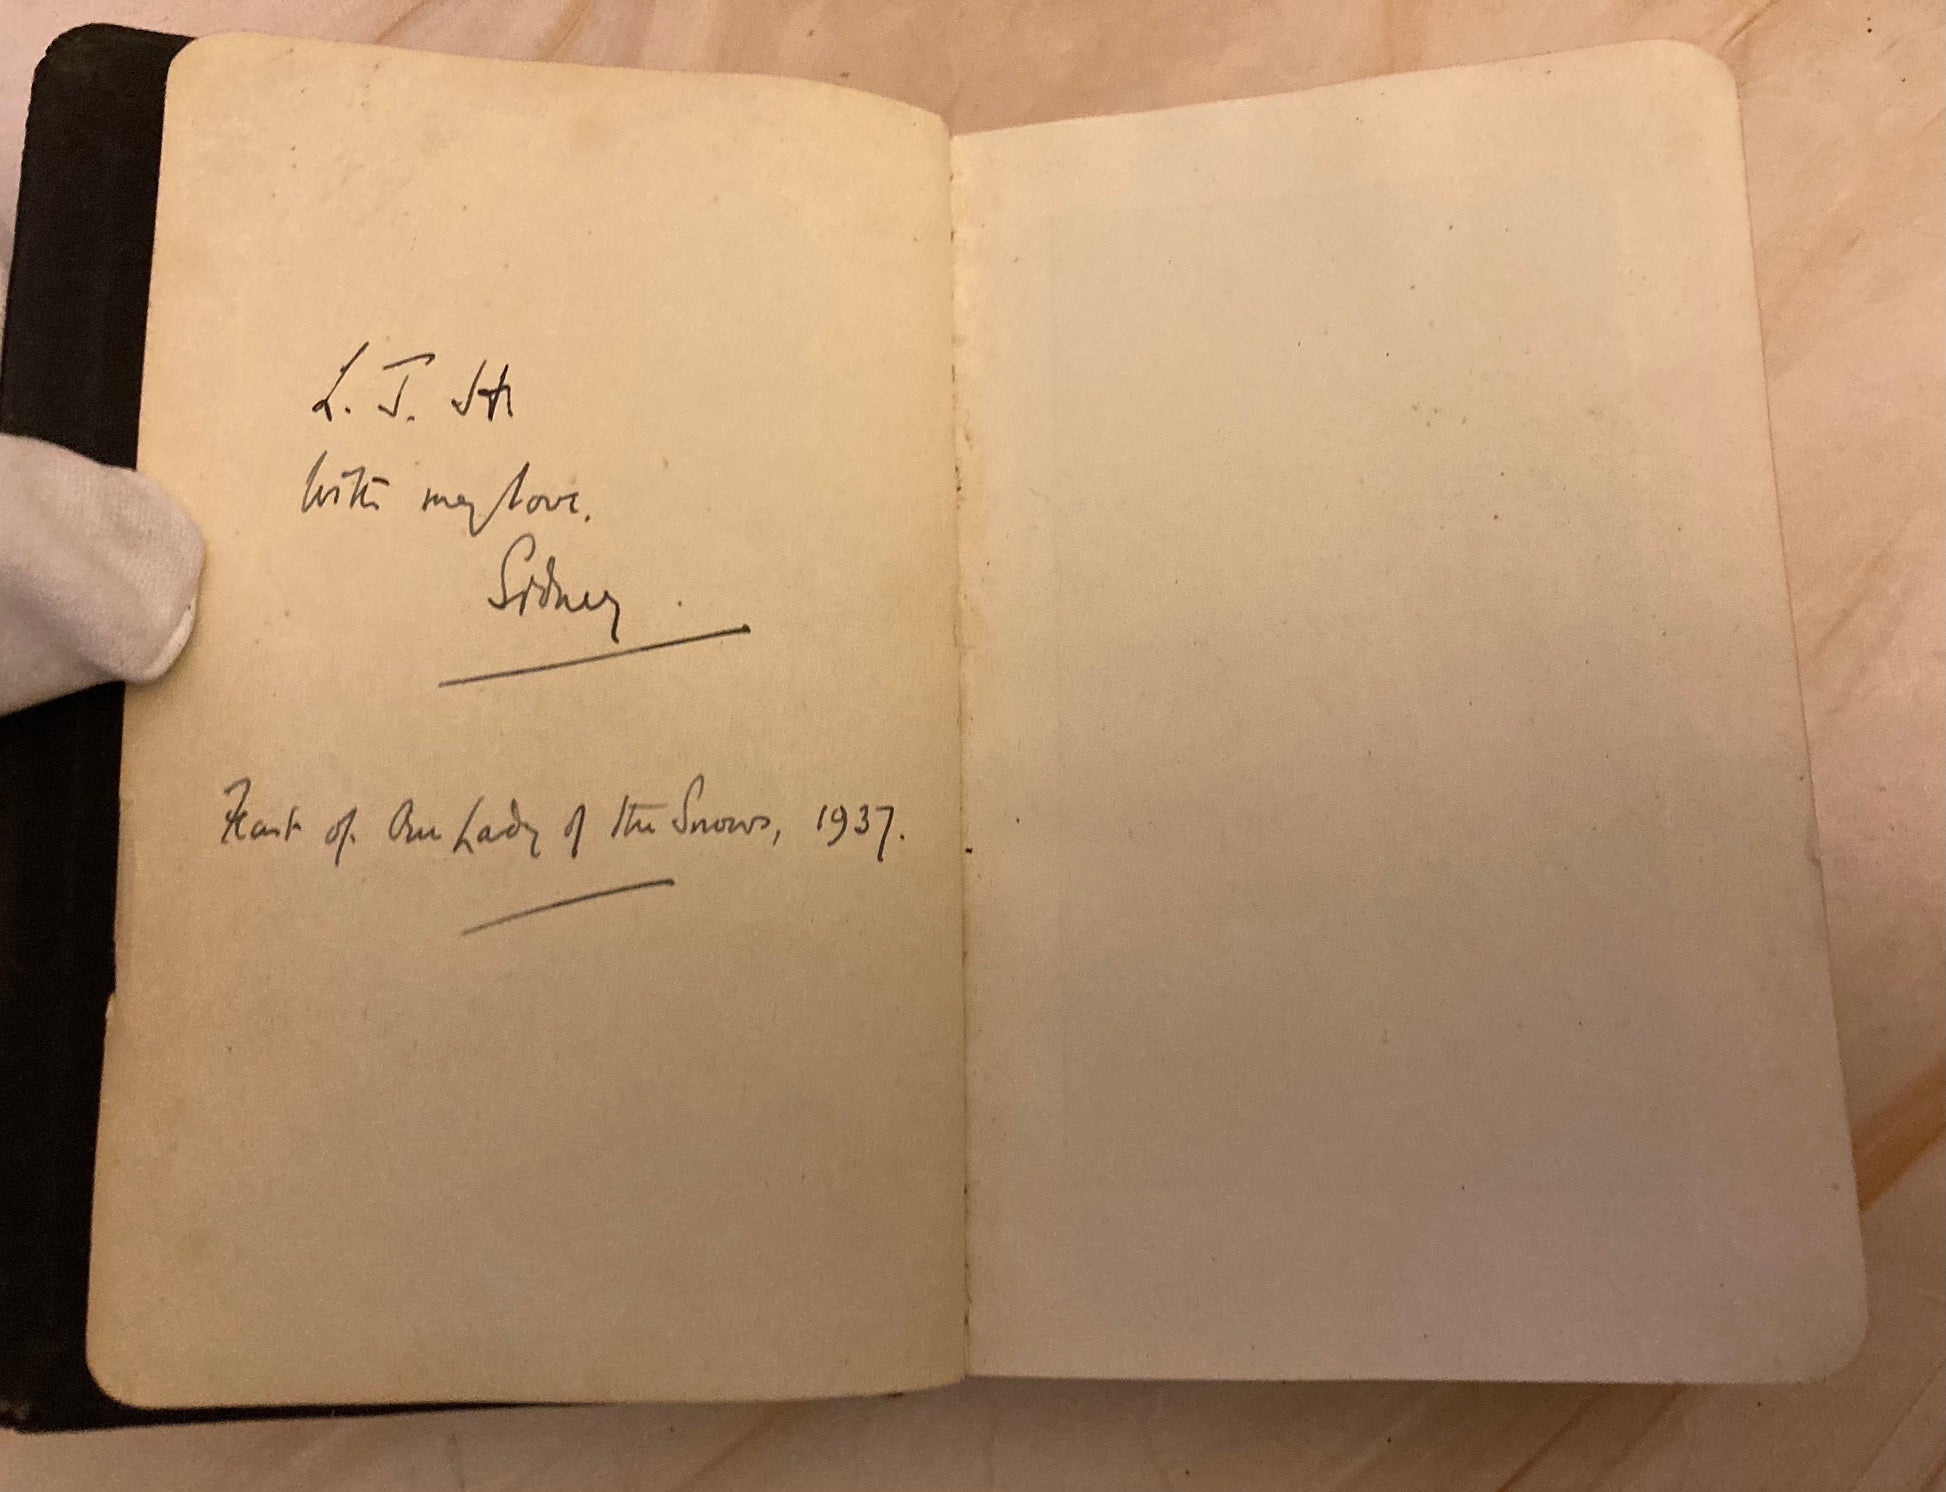 L. J. H.
With my love.
Sidney
Feast of Our Lady of the Snows, 1937.